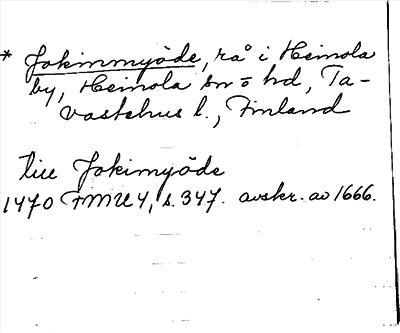 * Jokimmyöde, rå i Heinola
by, Heinola sn o hd, Ta-
vastehus l., Finland
till Jokimyöde
1470 FMU 4, s. 347. avskr. av 1666.